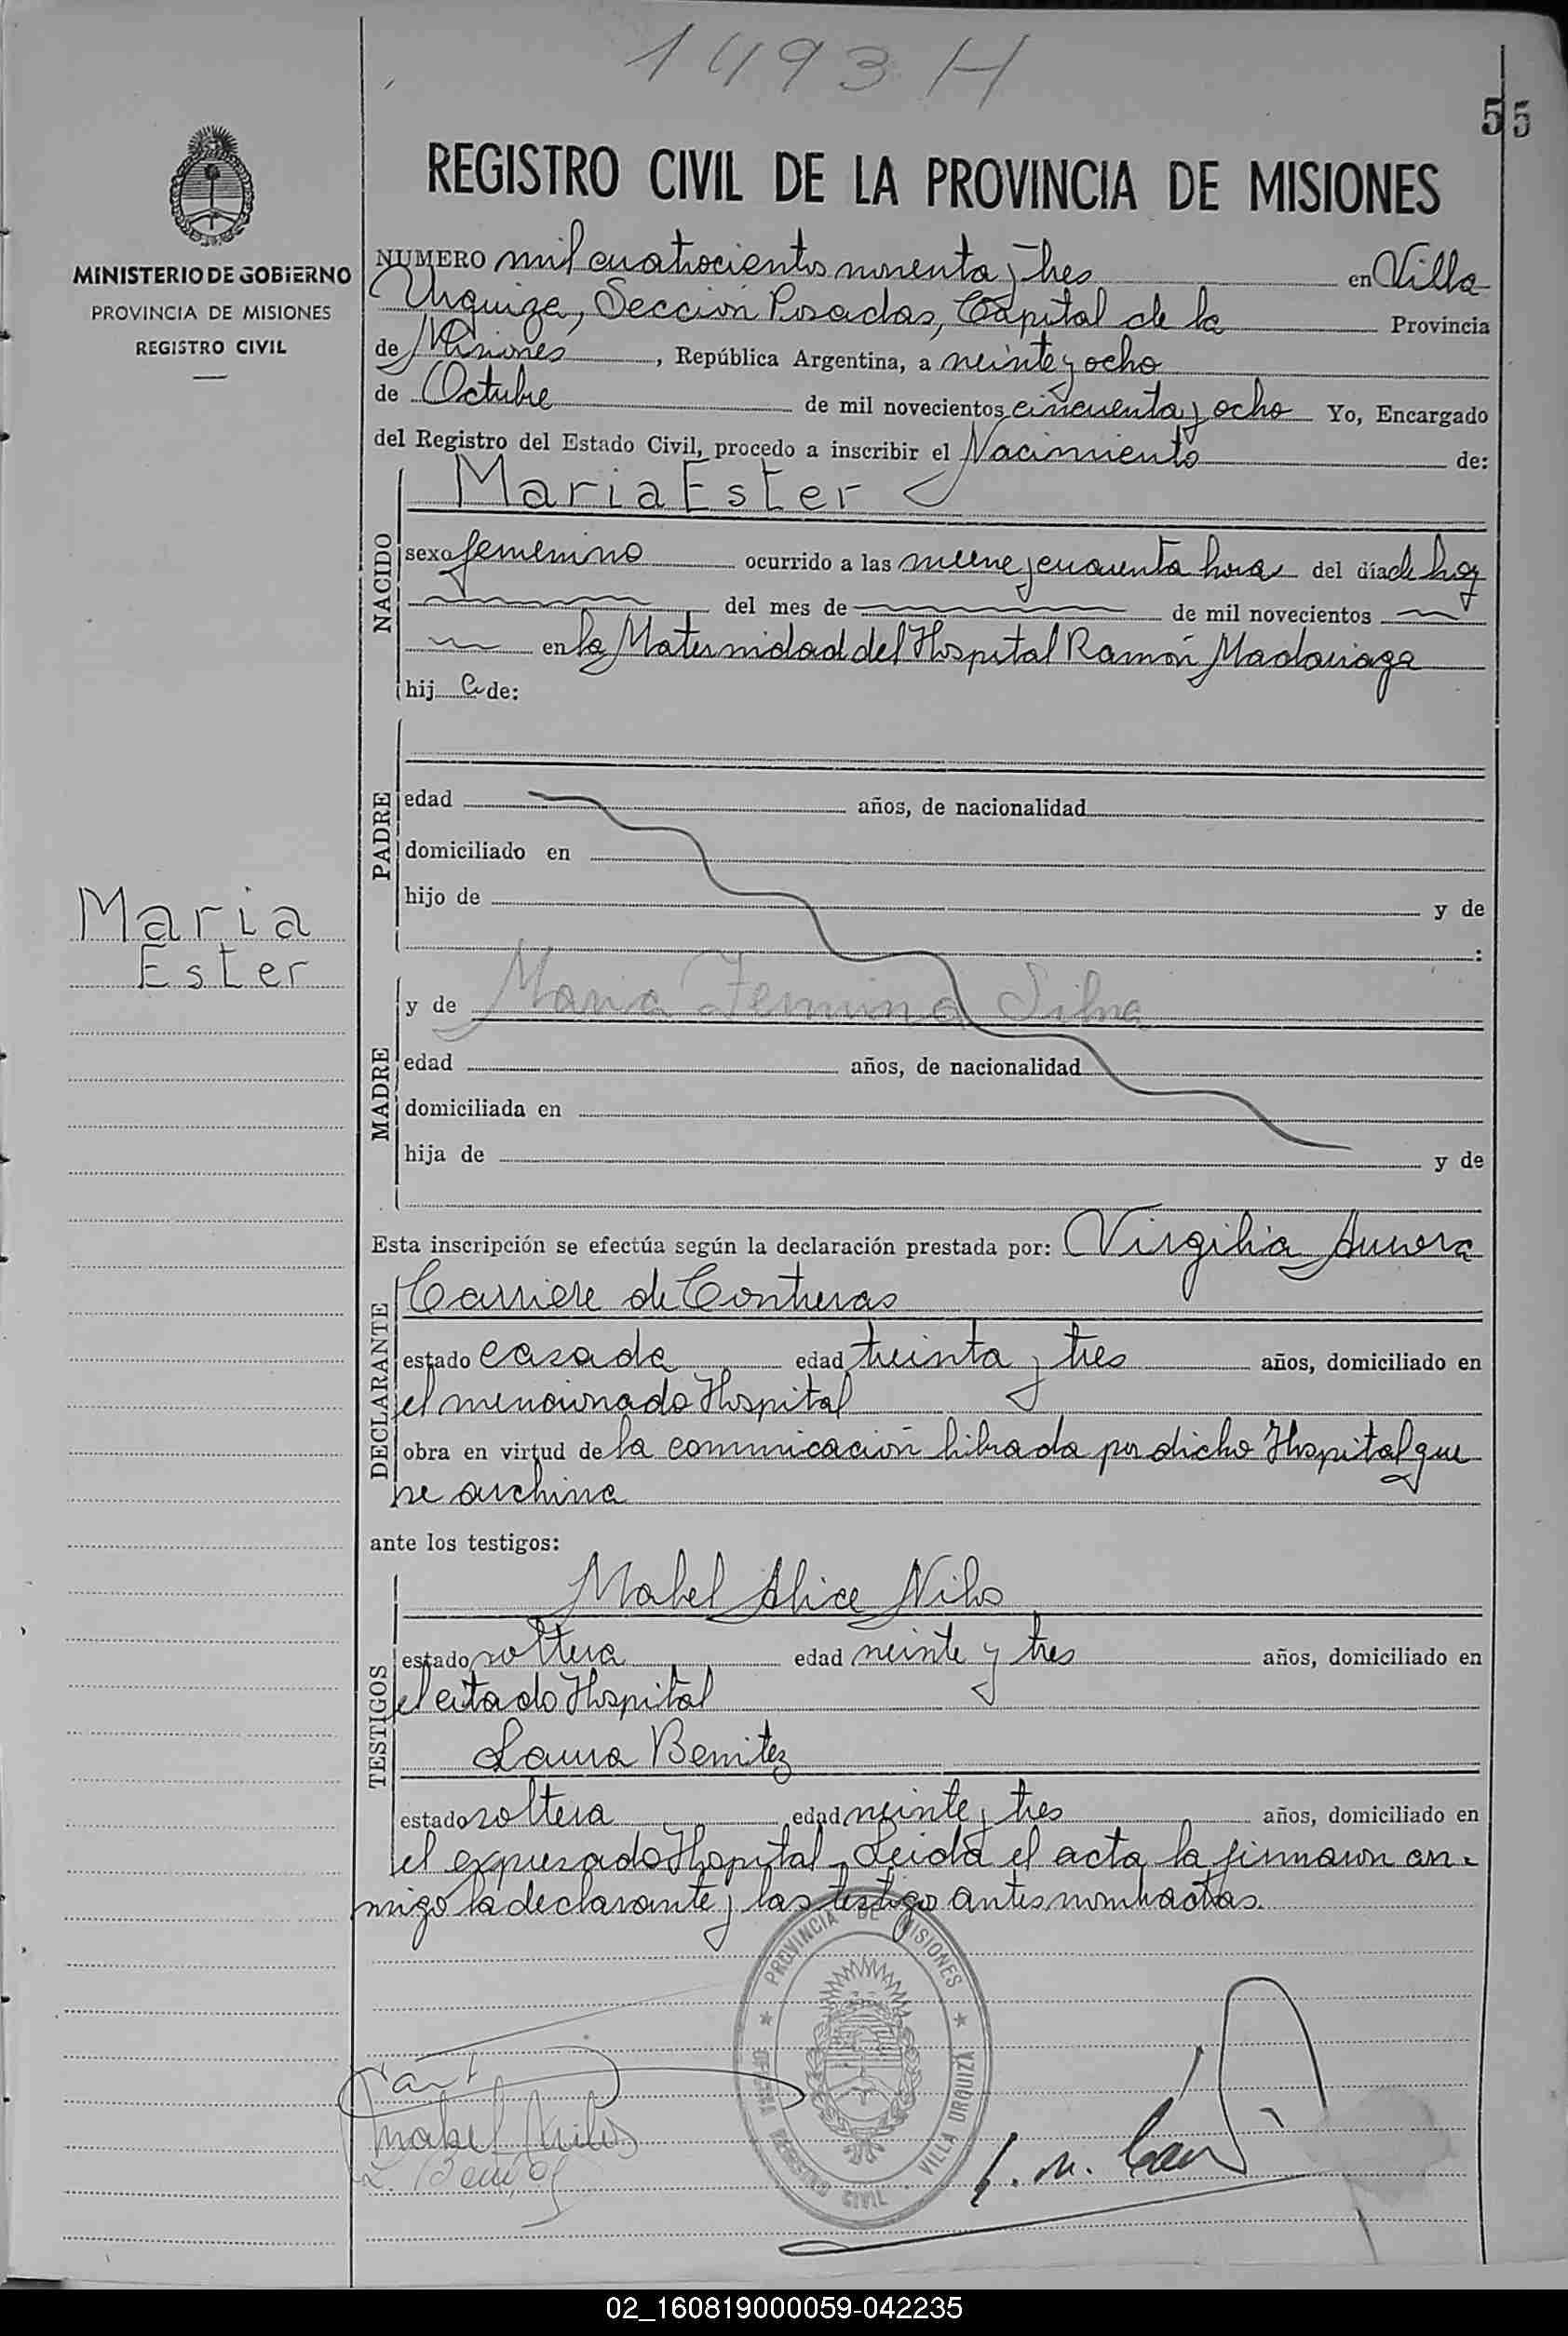 1493 H
55
REGISTRO CIVIL DE LA PROVINCIA DE MISIONES
MINISTERIO DE GOBIERNO
PROVINCIA DE MISIONES
REGISTRO CIVIL
NUMERO mil cuatrocientos noventa y tres en Villa
Urquiza, Sección Posadas, Capital de la Provincia
de Misiones, República Argentina, a veinte y ocho
de Octubre de mil novecientos cincuenta y ocho Yo, Encargado
del Registro del Estado Civil, procedo a inscribir el Nacimiento de:
NACIDO
Maria Ester
sexo femenino ocurrido a las nueve y cuarenta horas del día de hoy
del mes de de mil novecientos
en la Maternidad del Hospital Ramón Madariaga
hij a de:
PADRE
edad años, de nacionalidad
domiciliado en
hijo de y de
:
Maria
Ester
MADRE
y de Maria Silva
edad años, de nacionalidad
domiciliada en
hija de y de
Esta inscripción se efectúa según la declaración prestada por: Virgilia
DECLARANTE
Carriere de Contreras
estado casada edad treinta y tres años, domiciliado en
el mencionado Hospital
obra en virtud de la comunicación librada por dicho Hospital que
se archiva
ante los testigos:
TESTIGOS
Mabel Alice Nilos
estado soltera edad veinte y tres años, domiciliado en
el citado Hospital
Laura Benitez
estado soltera edad veinte y tres años, domiciliado en
el expresado Hospital. Leida el acta, la firmaron con-
migo la declarante y las testigo antes nombradas.
PROVINCIA DE MISIONES
OFICINA REGISTRO CIVIL VILLA URQUIZA
Mabel Nilos
L. Benitez
02_160819000059-042235